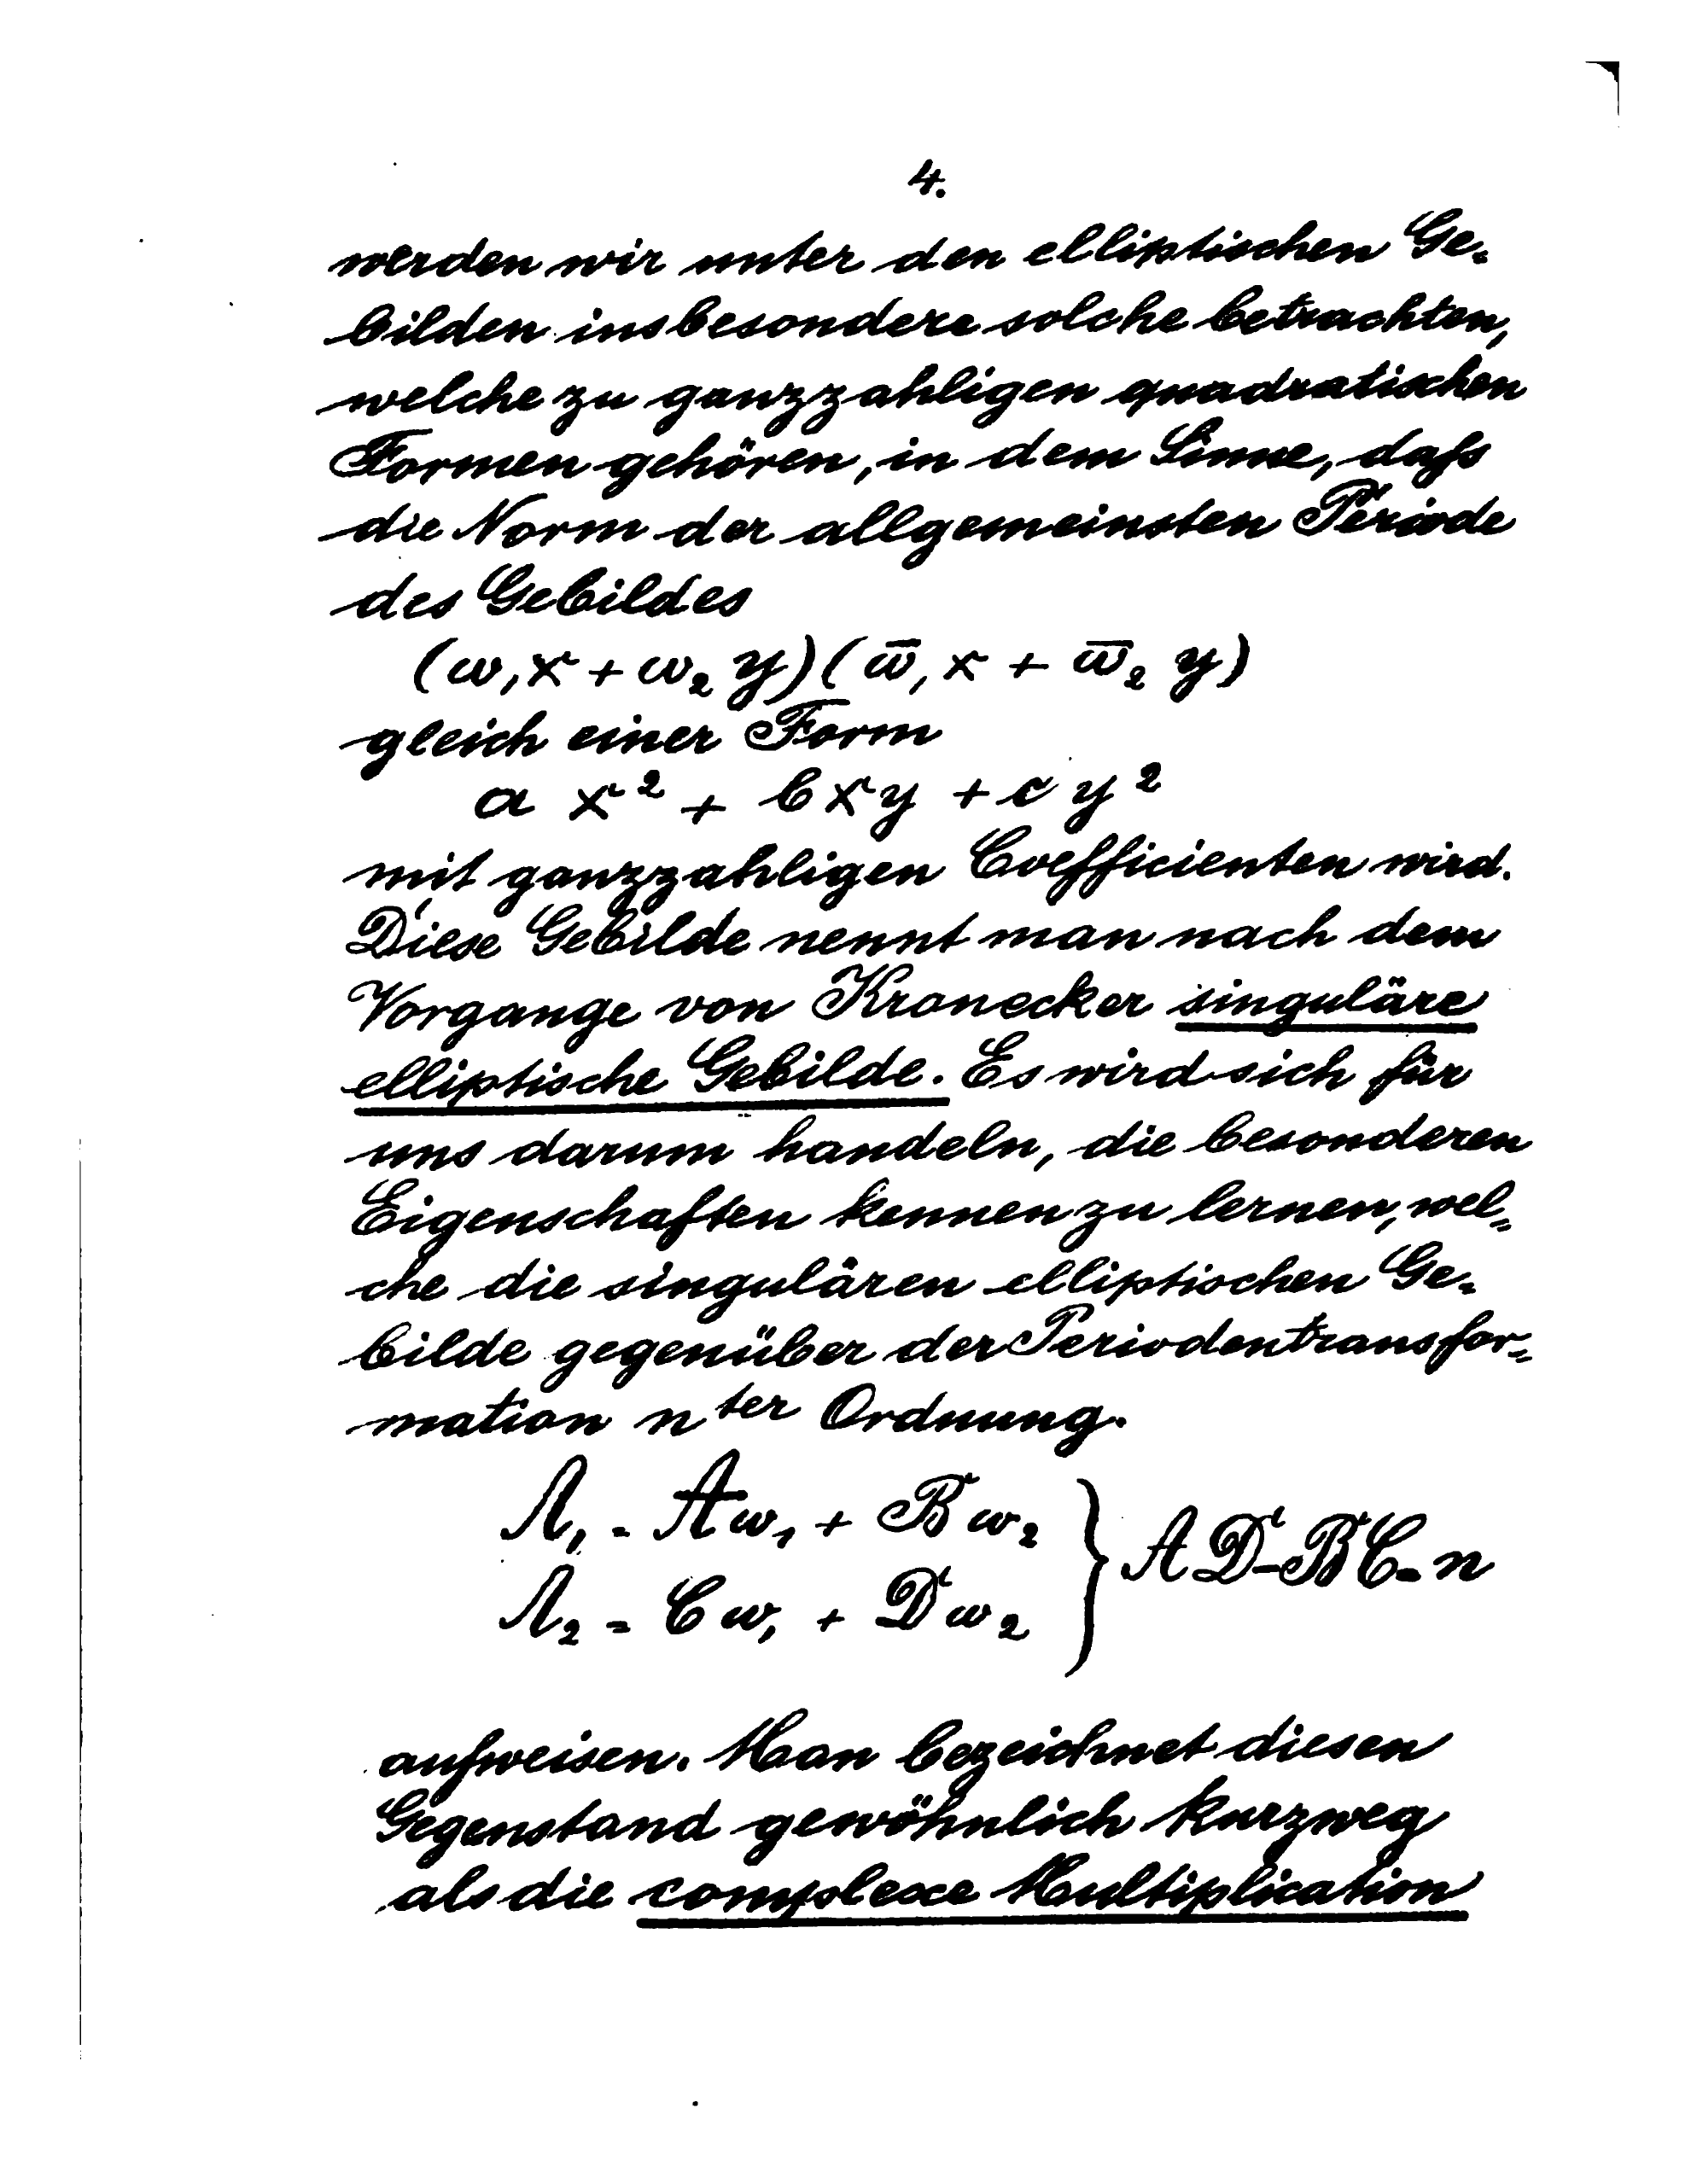 4.
werden wir unter den elliptischen Ge-
bilden insbesondere solche betrachten,
welche zu ganzzahligen quadratischen
Formen gehören, in dem Sinne, daſs
die Norm der allgemeinsten Periode
des Gebildes
(ω₁x + ω₂y)(ω̄₁x + ω̄₂y)
gleich einer Form
a x² + bxy + c y²
mit ganzzahligen Coefficienten wird.
Diese Gebilde nennt man nach dem
Vorgange von Kronecker singuläre
elliptische Gebilde. Es wird sich für
uns darum handeln, die besonderen
Eigenschaften kennen zu lernen, wel-
che die singulären elliptischen Ge-
bilde gegenüber der Periodentransfor-
mation nter Ordnung.
Λ₁ = Aω₁ + Bω₂ } AD-BC = n
Λ₂ = Cω₁ + Dω₂
aufweisen. Man bezeichnet diesen
Gegenstand gewöhnlich kurzweg
als die complexe Multiplication